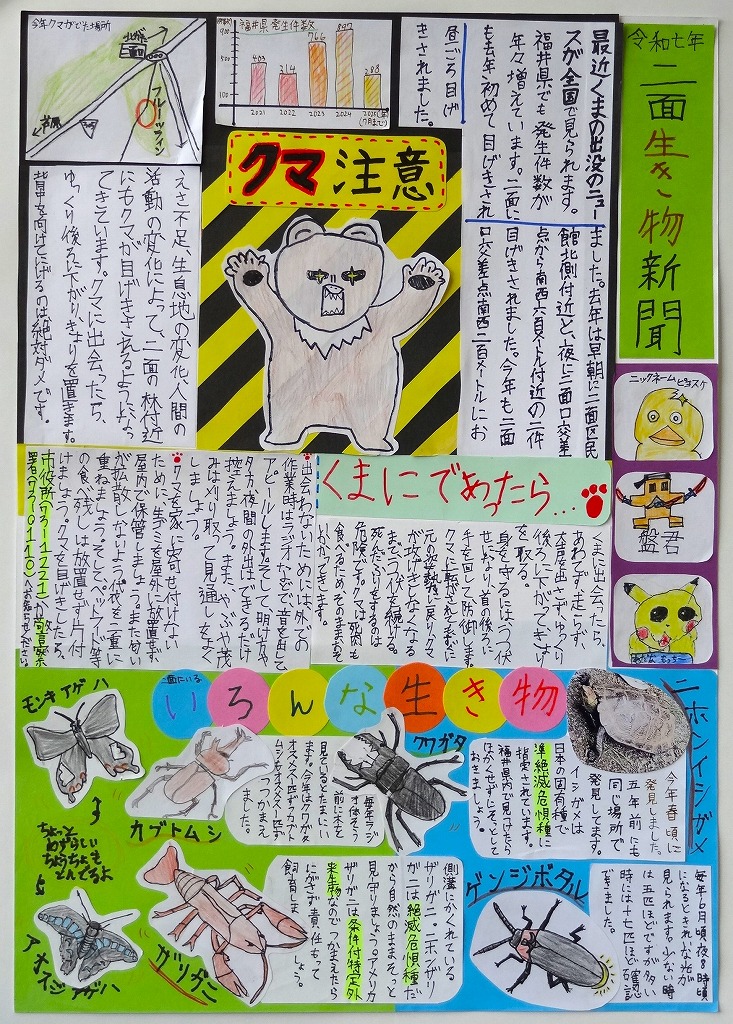 令和七年
二面生き物新聞
ニックネームピヨスケ
盤君
最近くまの出没のニュー
スが全国で見られます。
福井県でも発生件数が
年々増えています。二面に
も去年初めて目げきされ
ました。去年は早朝に二面区民
館北側付近と、夜に二面口交差
点から南西六百メートル付近の二件
目げきされました。今年も二面
口交差点南西二百メートルにお
昼ごろ目げ
きされました。
福井県発生件数
(件数)
900
500
100
403
214
766
897
288
2021
2022
2023
2024
2025(年)
(7月まで)
今年クマがでた場所
北がた
二面口
フルーツライン
芦原
クマ注意
えさ不足、生息地の変化、人間の
活動の変化によって、二面の林付近
にもクマが目げきされるようになっ
てきています。クマに出会ったら、
ゆっくり後ろに下がりきょりを置きます。
背中を向けてにげるのは絶対ダメです。
くまにであったら…
くまに出会ったら、
あわてず、走らず、
大声を出さず、ゆっくり
後ろに下がってきょり
を取る。
身を守るには、うつ伏
せになり、首の後ろに
手を回して防御します。
クマに転がされてもすぐに
元の姿勢に戻り、クマ
が攻げきしなくなる
までうつ伏を続ける。
死んだふりをするのは
危険です。クマは死肉も
食べるためそのままおそ
いかかってきます。
出会わないためには、外での
作業時はラジオなどで、音を出して
アピールします。そして、明け方や
夕方、夜間の外出はできるだけ
控えましょう。また、やぶや茂
みは刈り取って見通しをよく
しましょう。
クマを家に寄せ付けない
ために、生ゴミを屋外に放置せず、
屋内で保管しましょう。またにおい
が拡散しないよう、袋を二重に
重ねましょう。そして、ペットフード等
の食べ残しは放置せず片付
けましょう。クマを目げきしたら、
市役所(73-1221)か警察
署(73-0110)へお知らせください。
二面にいる
いろんな生き物
ニホンイシガメ
今年春頃に
発見しました。
五年前にも
同じ場所で
発見してます。
イシガメは
日本の固有種で
準絶滅危惧種に
指定されています。
福井県内で見つけたら
ほかくせずにそっとして
おきましょう。
クワガタ
毎年ラジ
オ体そう
前に木を
見ているとたまにい
ます。今年はクワガタ
オスメス一匹ずつ、カブト
ムシをオスメス一匹ずつ
つかまえ
ました。
カブトムシ
モンキアゲハ
ちょっと
めずらしい
ちょうちょも
とんでるよ
アオスジアゲハ
ザリガニ
側溝にかくれている
ザリガニ。ニホンザリ
ガニは絶滅危惧種だ
から自然のままそっと
見守りましょう。アメリカ
ザリガニは条件付特定外
来生物なのでつかまえたら
にがさず責任もって
飼育しま
しょう。
ゲンジボタル
毎年6月頃、夜8時頃
になるときれいな光が
見られます。少ない時
は五匹ほどですが多い
時には十七匹ほど確認
できました。